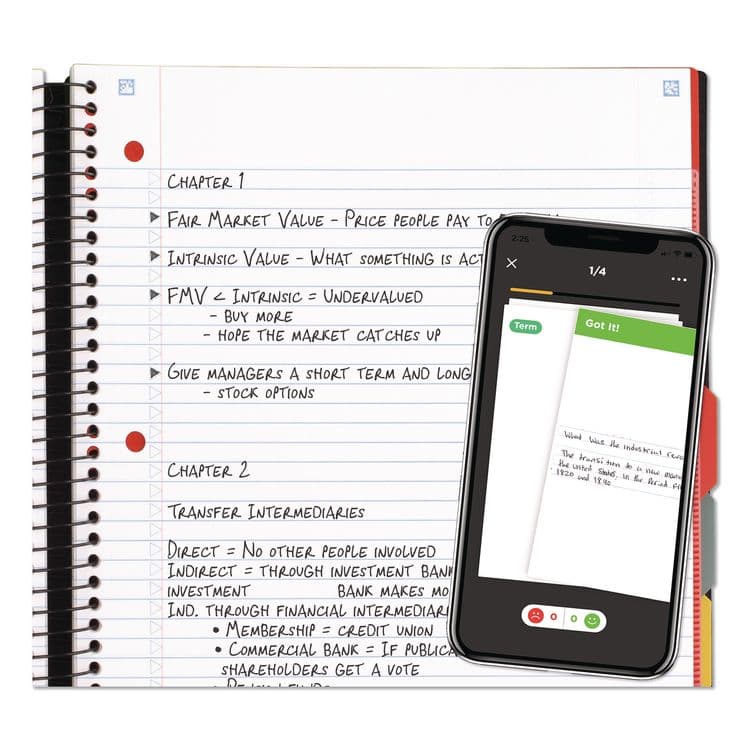 CHAPTER 1
FAIR MARKET VALUE - PRICE PEOPLE PAY TO
INTRINSIC VALUE - WHAT SOMETHING IS ACT
FMV < INTRINSIC = UNDERVALUED
- BUY MORE
- HOPE THE MARKET CATCHES UP
GIVE MANAGERS A SHORT TERM AND LONG
- STOCK OPTIONS
CHAPTER 2
TRANSFER INTERMEDIARIES
DIRECT = NO OTHER PEOPLE INVOLVED
INDIRECT = THROUGH INVESTMENT BANK
INVESTMENT BANK MAKES MO
IND. THROUGH FINANCIAL INTERMEDIARI
• MEMBERSHIP = CREDIT UNION
• COMMERCIAL BANK = IF PUBLICA
SHAREHOLDERS GET A VOTE
2:25
1/4
Term
Got It!
What Was the industrial revo
The transition to a new manu
the United States, in the Period Fr
1820 and
0 0